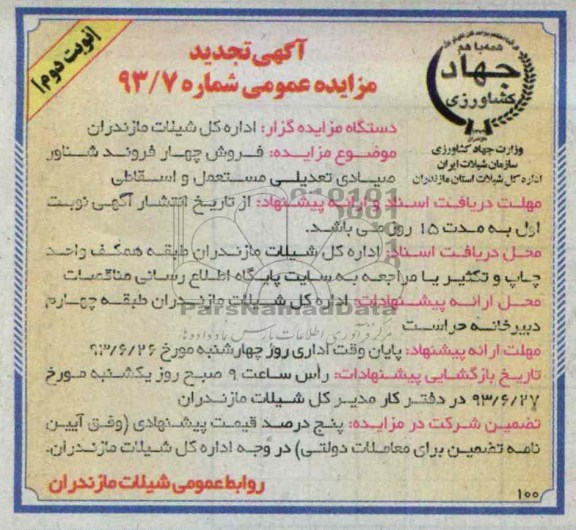 (نوبت دوم)
آگهی تجدید
مزایده عمومی شماره ۹۳/۷
همه با هم
جهاد
کشاورزی
وزارت جهاد کشاورزی
سازمان شیلات ایران
اداره کل شیلات استان مازندران
دستگاه مزایده گزار: اداره کل شیلات مازندران
موضوع مزایده: فروش چهار فروند شناور
صیادی تعدیلی مستعمل و اسقاطی
مهلت دریافت اسناد و ارائه پیشنهاد: از تاریخ انتشار آگهی نوبت
اول به مدت ۱۵ روز می باشد.
محل دریافت اسناد: اداره کل شیلات مازندران طبقه همکف واحد
چاپ و تکثیر یا مراجعه به سایت پایگاه اطلاع رسانی مناقصات
محل ارائه پیشنهادات: اداره کل شیلات مازندران طبقه چهارم
دبیرخانه حراست
مهلت ارائه پیشنهاد: پایان وقت اداری روز چهارشنبه مورخ ۹۳/۶/۲۶
تاریخ بازگشایی پیشنهادات: رأس ساعت ۹ صبح روز یکشنبه مورخ
۹۳/۶/۲۷ در دفتر کار مدیر کل شیلات مازندران
تضمین شرکت در مزایده: پنج درصد قیمت پیشنهادی (وفق آیین
نامه تضمین برای معاملات دولتی) در وجه اداره کل شیلات مازندران.
روابط عمومی شیلات مازندران
۱۰۰
ParsNamadData
مرکز فرآوری اطلاعات پارس نماد داده ها